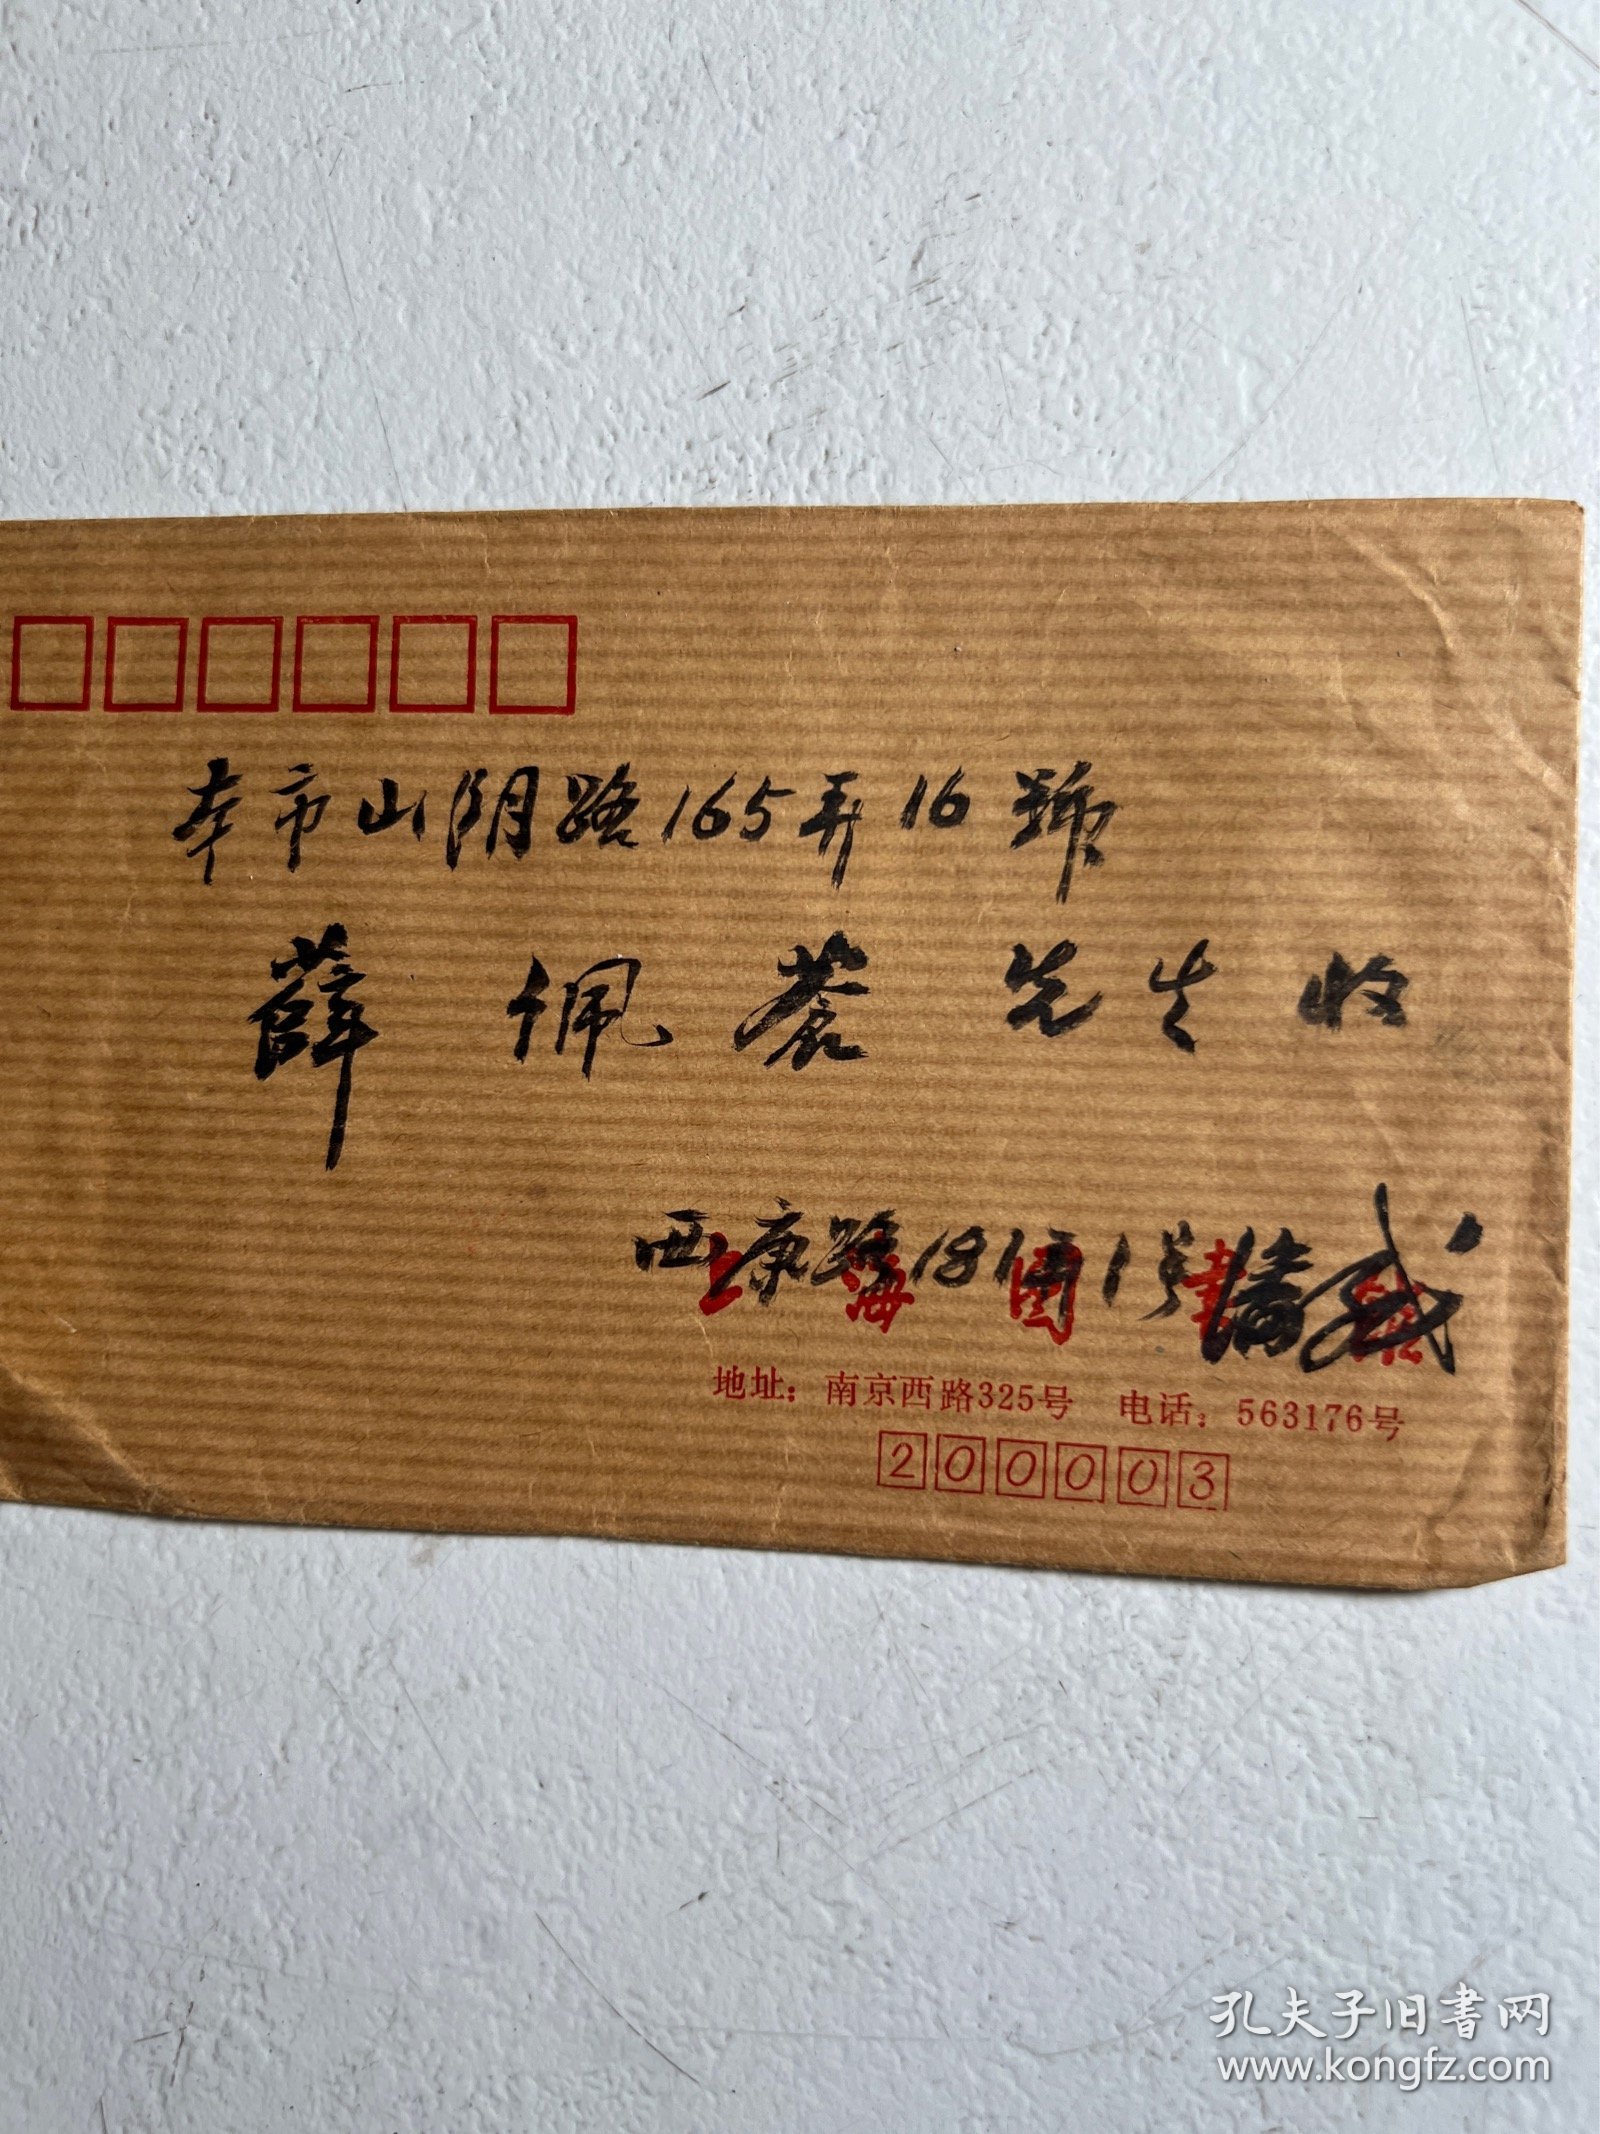 本市山阴路165弄16號
薛佩蒼先生收
西康路181弄1号潘
上海图書館
地址：南京西路325号 电话：563176号
200003
孔夫子旧書网
www.kongfz.com